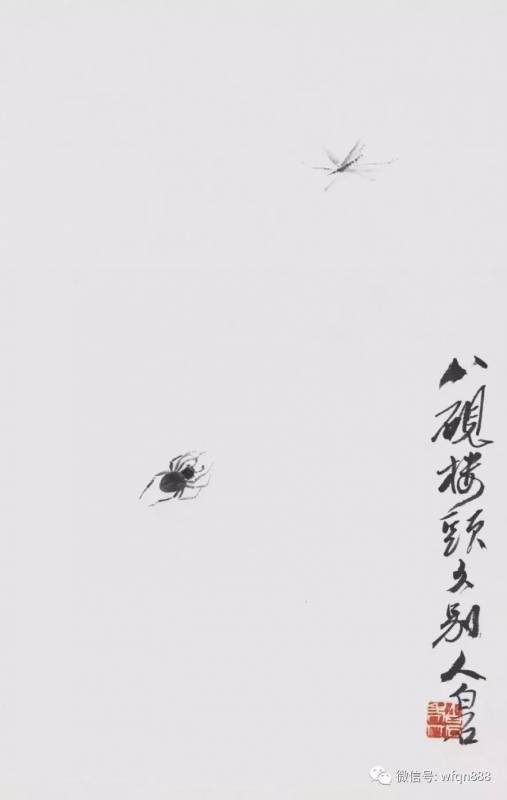 八硯楼頭久别人白石
微信号: wfqn888